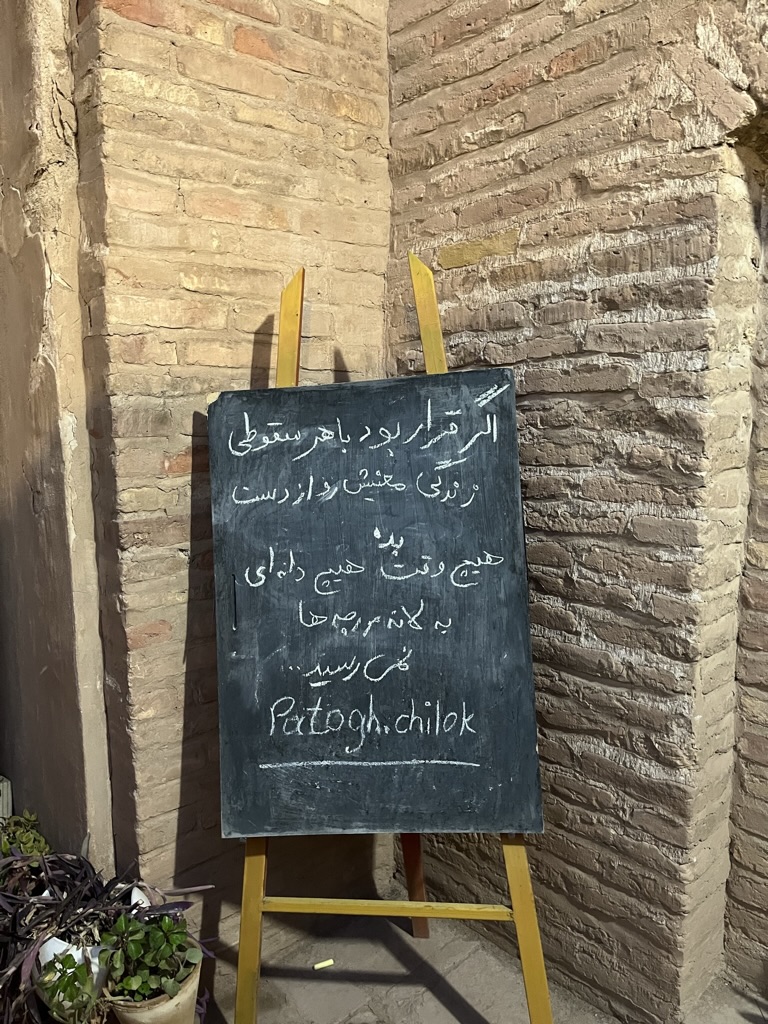 اگر قرار بود با هر سقوطی
زندگی معنیش رو از دست
بده
هیچ وقت هیچ دانه‌ای
به لانه مورچه ها
نمی رسید...
Patogh.chilok